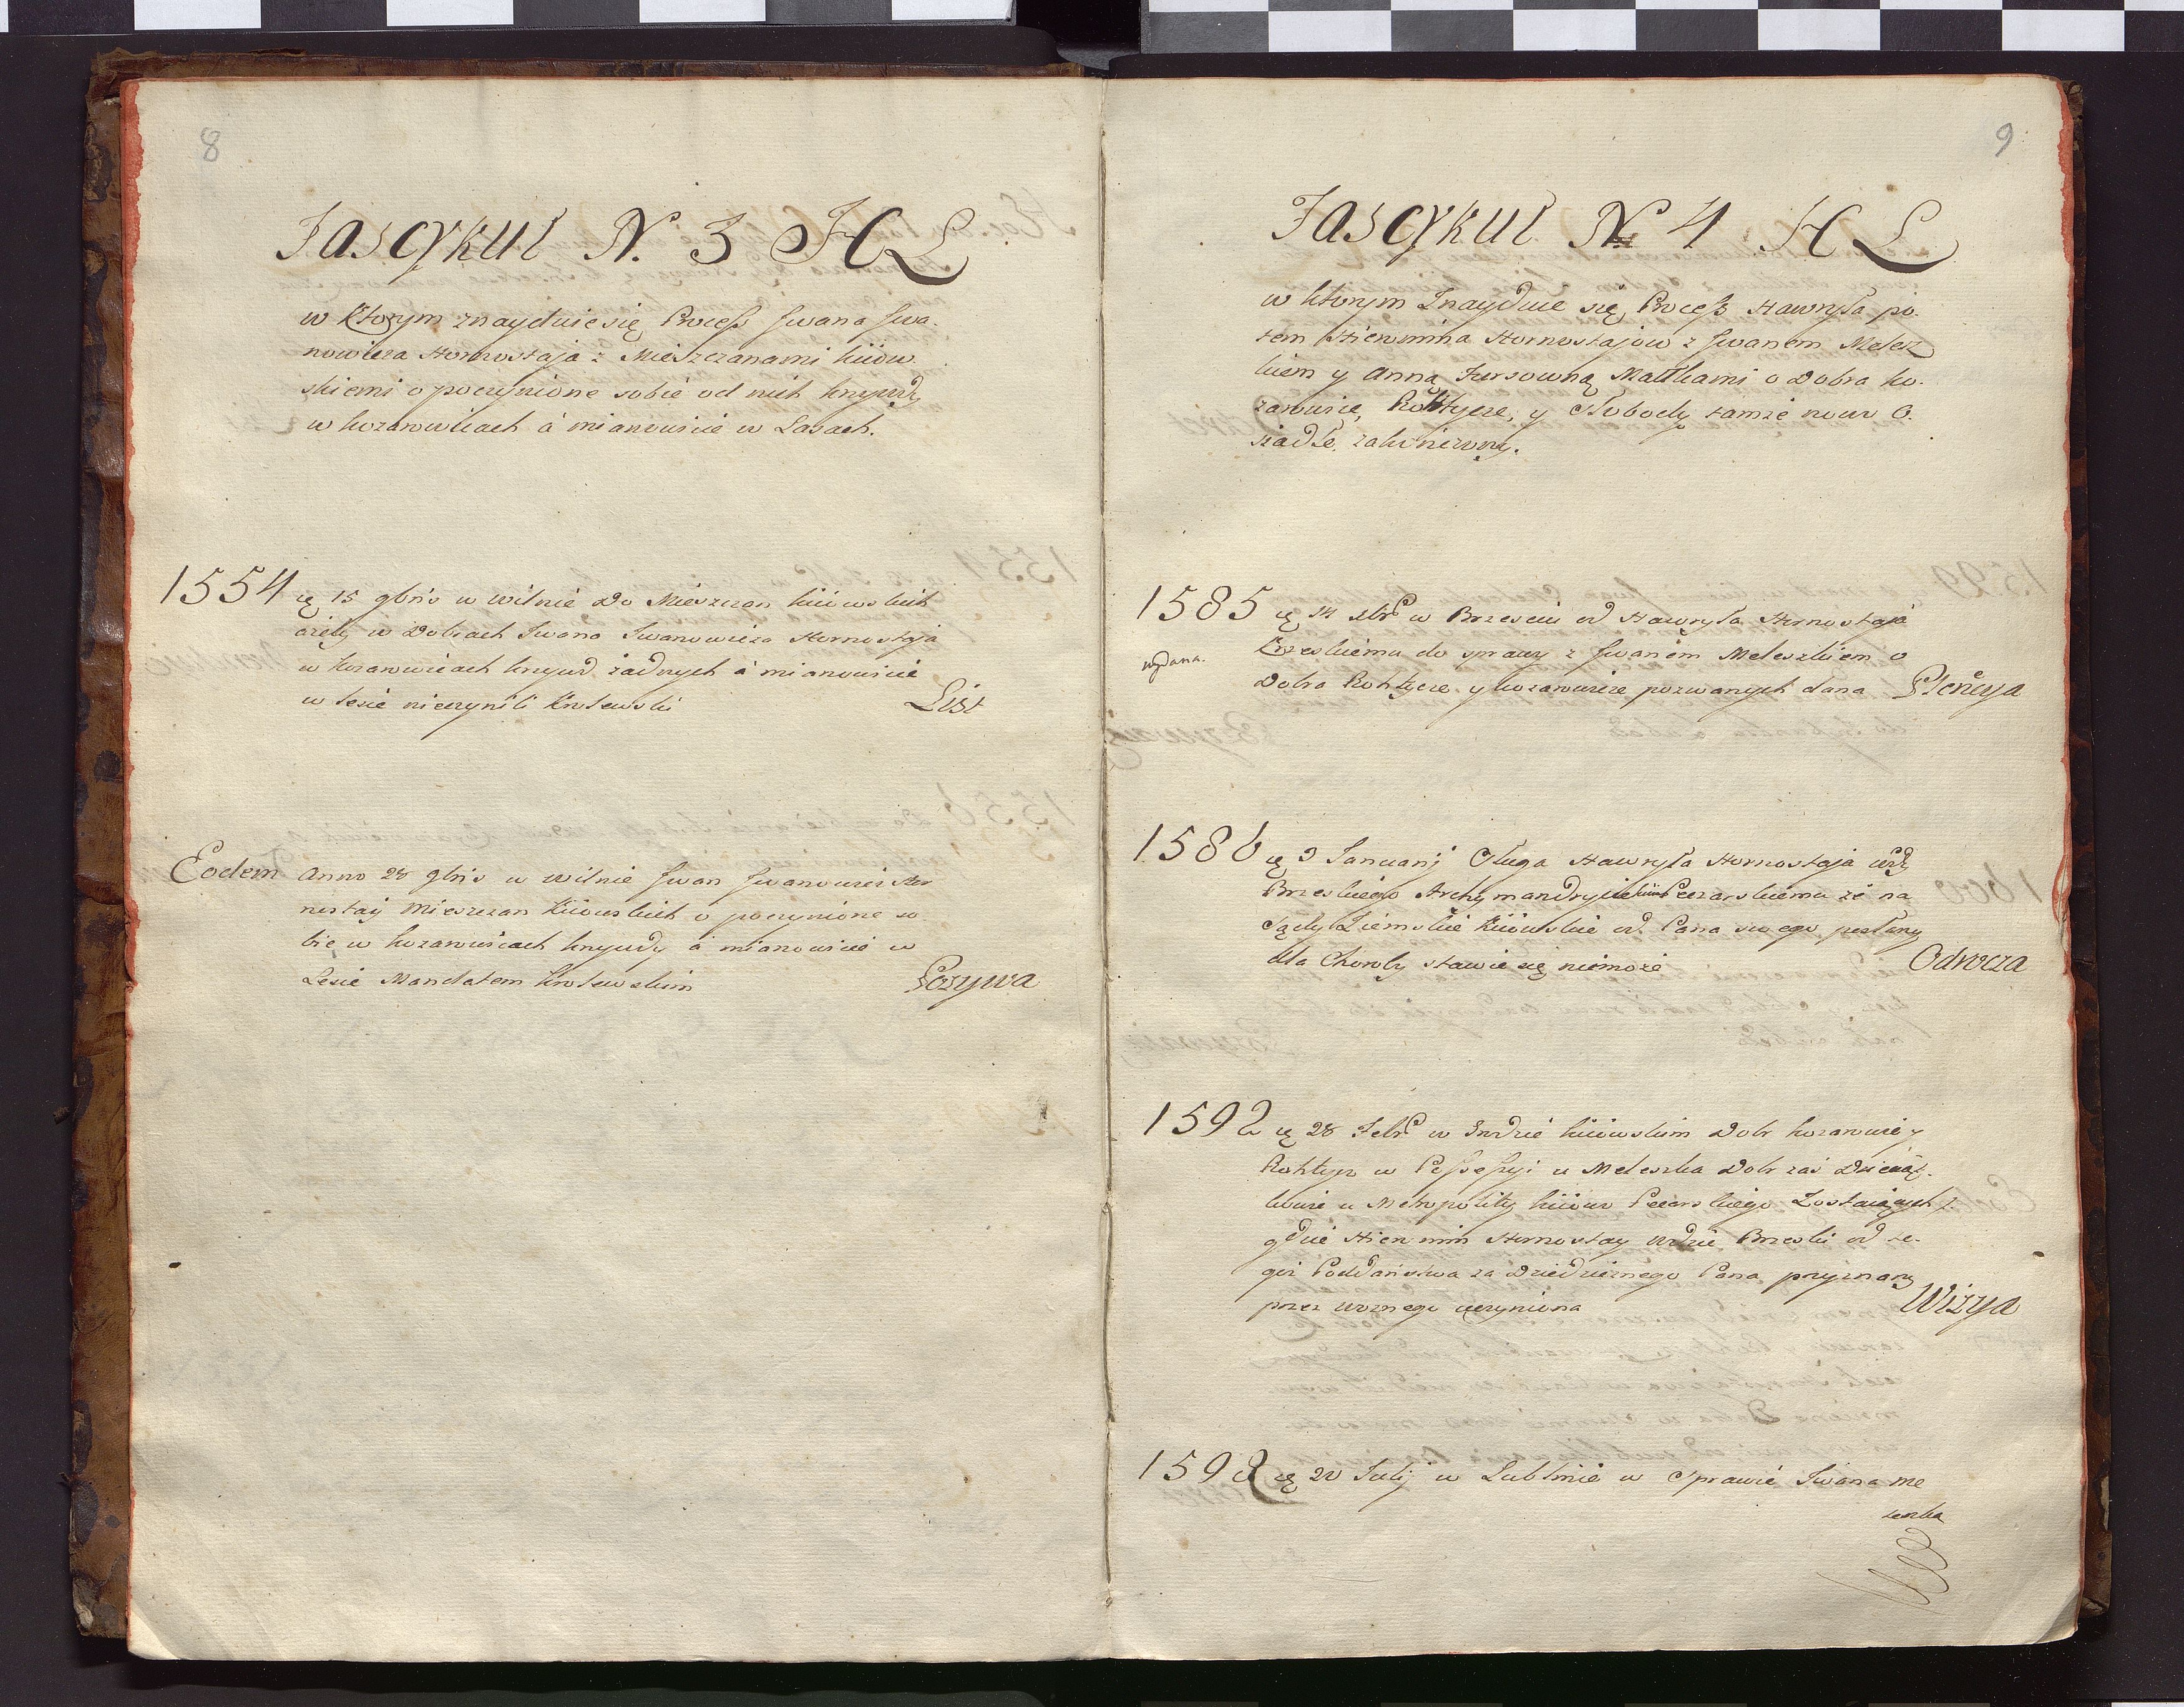 8
Fascykuł N. 3 H L
w którym znayduie się Process Iwana Iwa-
nowicza Hornostaja z Mieszczanami kiiow-
skiemi o poczynione sobie od nich krzywdy
w kozarowicach a mianowicie w Lasach.
1554 ą 15 9bris w Wilnie do Mieszczan kiiowskich
ażeby w Dobrach Iwana Iwanowicza Hornostaja
w kozarowicach krzywd żadnych a mianowicie
w lesie nieczynili Krolewski List
Eodem Anno 28 9bris w Wilnie Iwan Iwanowicz Hor
nostaij Mieszczan Kiiowskich o poczynione so
bie w kozarowicach krzywdy a mianowicie w
Lesie Mandatem Krolewskim Pozywa
9
Fascykuł N 4 H L
w ktorym Znayduie się Process Hawryła po-
tem Hieronima Hornostajow z Iwanem Melesz
kiem y Anną Fursowną Małżkami o Dobra ko-
zarowice, Rohtycze, y Słobody tamże nowo O-
siadłe, zakonczony.
1585 ą 14 xbr w Brzesciu od Hawryła Hornostaja
wydana. Brzeskiemu do sprawy z Iwanem Meleszkiem o
Dobra Rohtycze y kozarowicze pozwanych dana Plencya
1586 ą 9 Januarij Sługa Hawryła Hornostaja Wdy
Brzeskiego Archymandrycie kiio Peczarskiemu że na
Sądy Ziemskie Kiiowskie od Pana swego posłany
dla Choroby stawic się niemoże Odrocza
1592 ą 28 Febr w Grodzie kiiowskim Dobr kozarowic y
Rohtycz w Possessyi u Meleszka Dobr zas
u Metropolity kiiow Peczarskiego Zostaiących
gdzie Hieronim Hornostay Wdzic Brzeski od te-
goż Poddaństwa za Dziedzicznego Pana przyznany
przez woznego uczyniona Wizya
1598 ą 20 Julij w Lublinie w Sprawie Iwana Me
leszka